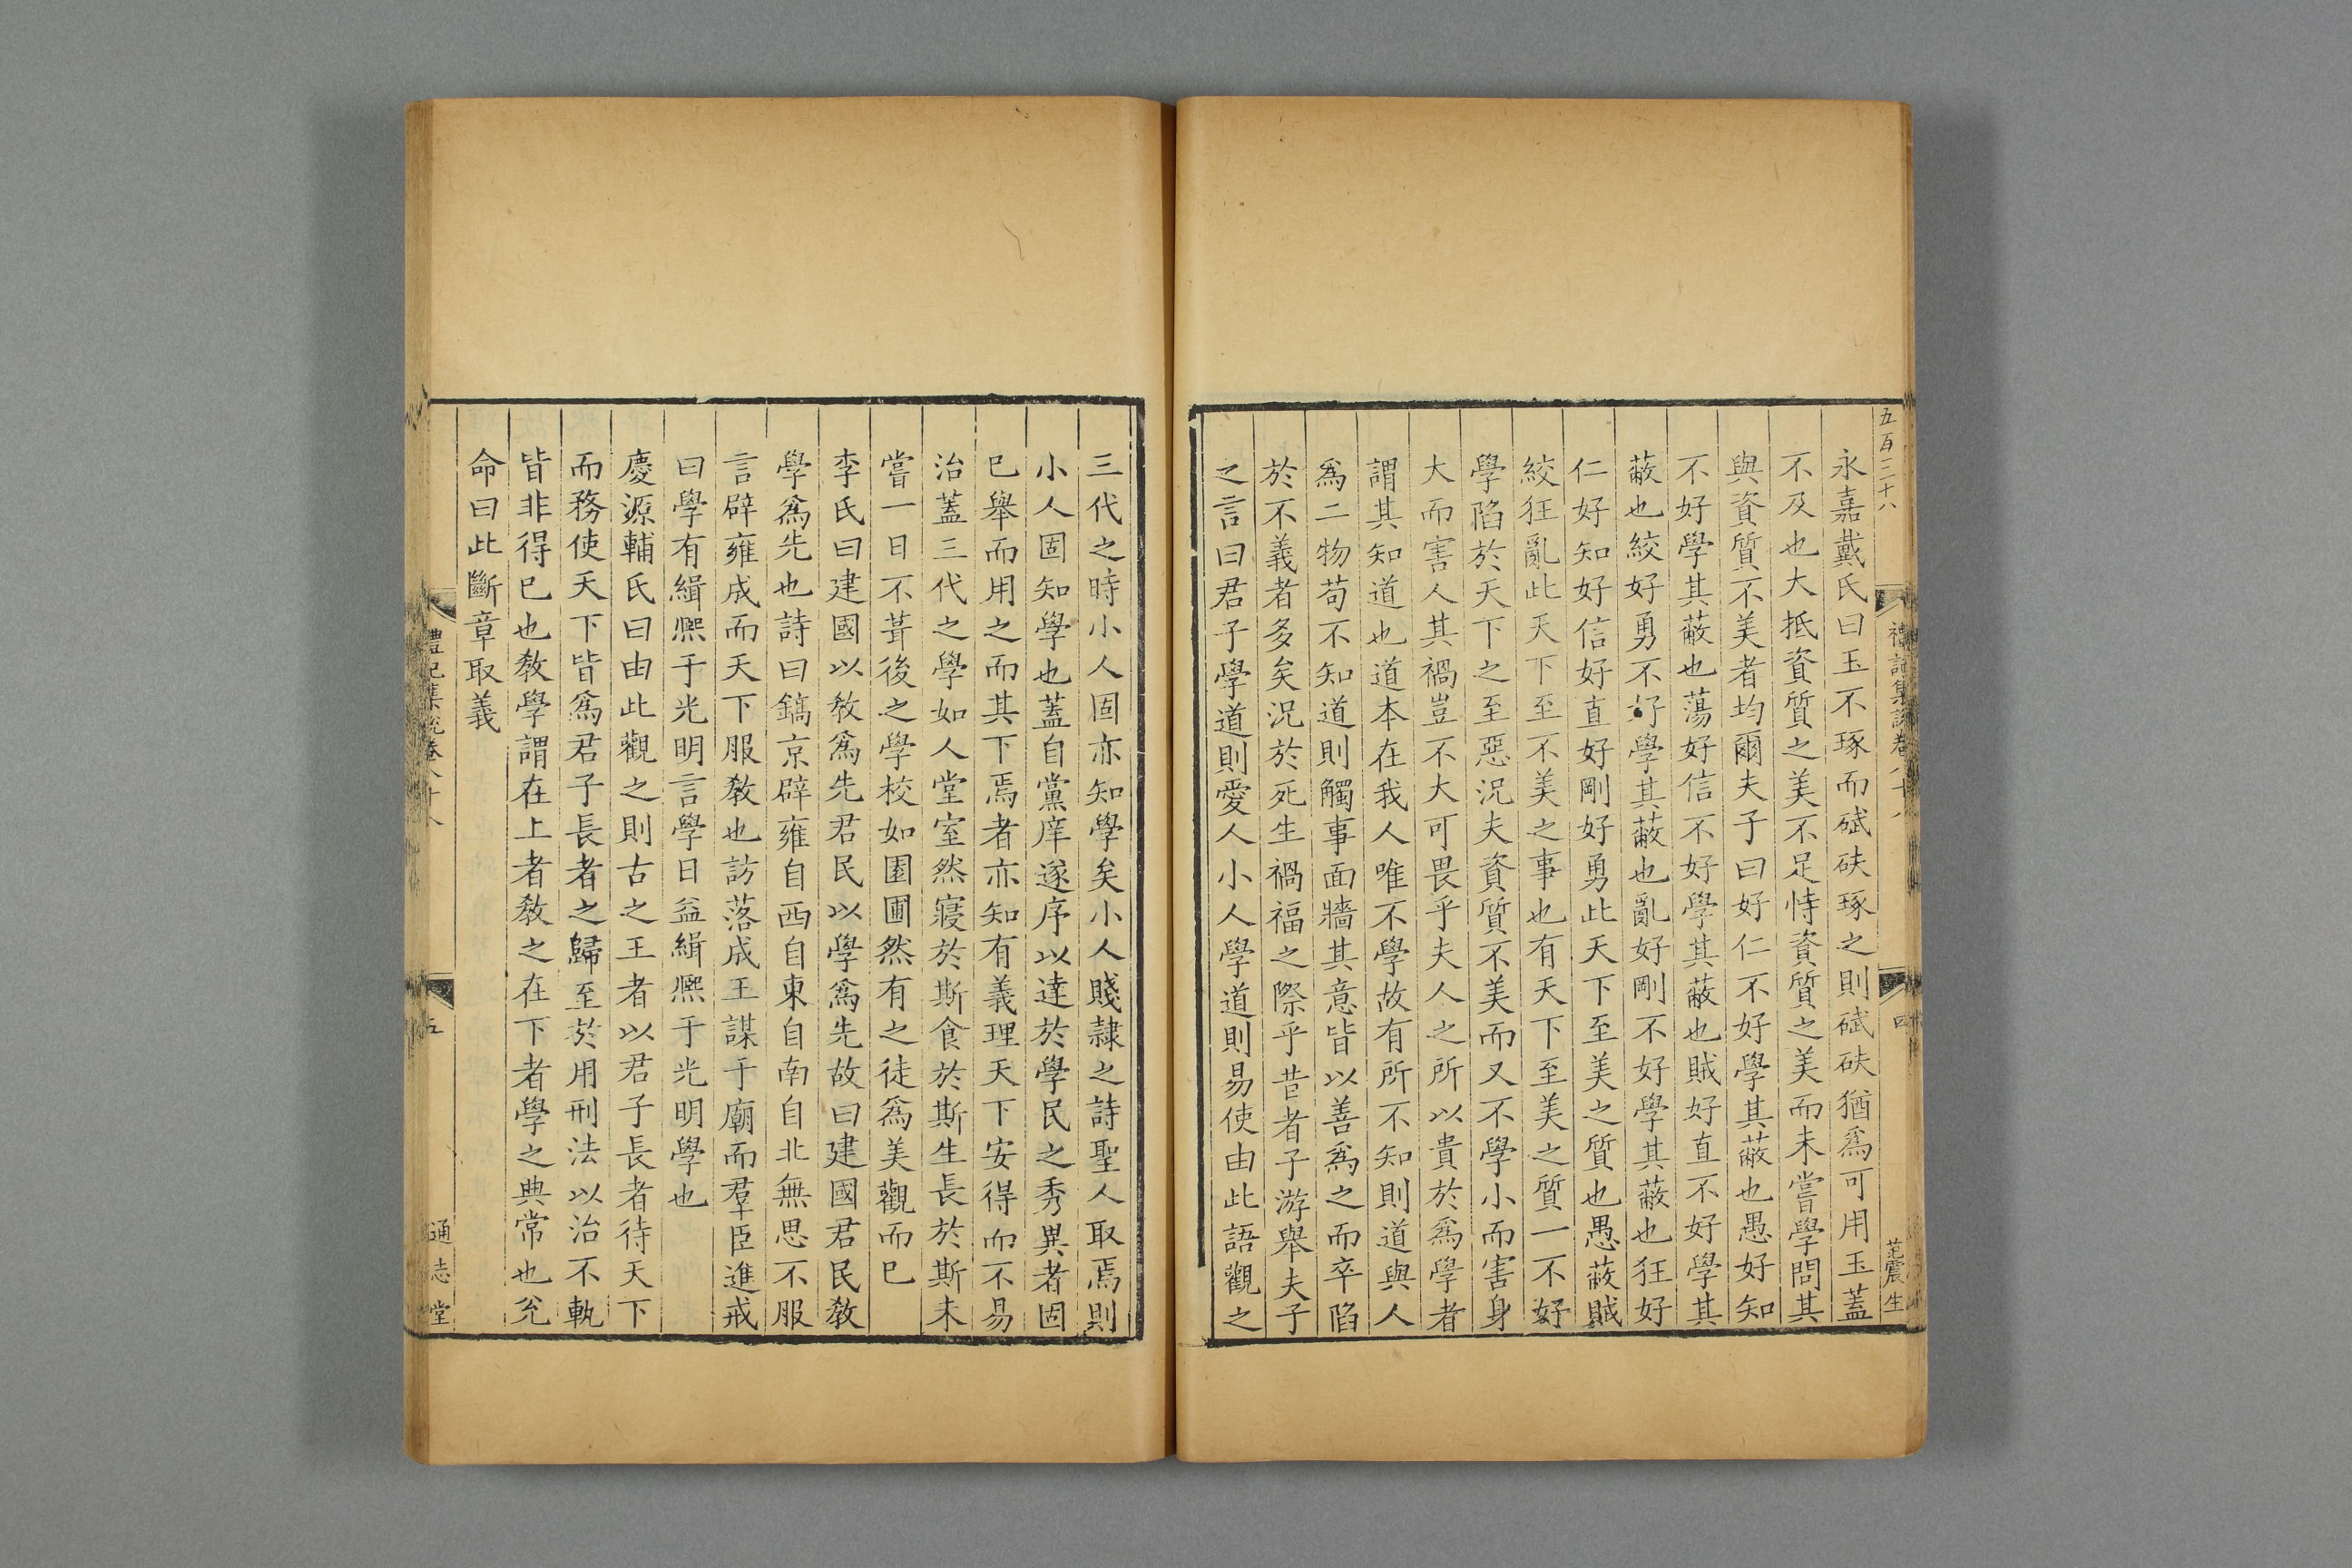 五百二十八
禮記集說卷八十八
四
范震生
永嘉戴氏曰玉不琢而碔砆琢之則碔砆猶爲可用玉蓋
不及也大抵資質之美不足恃資質之美而未嘗學問其
與資質不美者均爾夫子曰好仁不好學其蔽也愚好知
不好學其蔽也蕩好信不好學其蔽也賊好直不好學其
蔽也絞好勇不好學其蔽也亂好剛不好學其蔽也狂好
仁好知好信好直好剛好勇此天下至美之質也愚蔽賊
絞狂亂此天下至不美之事也有天下至美之質一不好
學陷於天下之至惡況夫資質不美而又不學小而害身
大而害人其禍豈不大可畏乎夫人之所以貴於爲學者
謂其知道也道本在我人唯不學故有所不知則道與人
爲二物苟不知道則觸事面牆其意皆以善爲之而卒陷
於不義者多矣況於死生禍福之際乎昔者子游舉夫子
之言曰君子學道則愛人小人學道則易使由此語觀之
三代之時小人固亦知學矣小人賤隸之詩聖人取焉則
小人固知學也蓋自黨庠遂序以達於學民之秀異者固
已舉而用之而其下焉者亦知有義理天下安得而不易
治蓋三代之學如人堂室然寢於斯食於斯生長於斯未
嘗一日不葺後之學校如園圃然有之徒爲美觀而已
李氏曰建國以敎爲先君民以學爲先故曰建國君民敎
學爲先也詩曰鎬京辟雍自西自東自南自北無思不服
言辟雍成而天下服敎也訪落成王謀于廟而羣臣進戒
曰學有緝熙于光明言學日益緝熙于光明學也
慶源輔氏曰由此觀之則古之王者以君子長者待天下
而務使天下皆爲君子長者之歸至於用刑法以治不軌
皆非得已也敎學謂在上者敎之在下者學之典常也兊
命曰此斷章取義
禮記集說卷八十八
五
通志堂